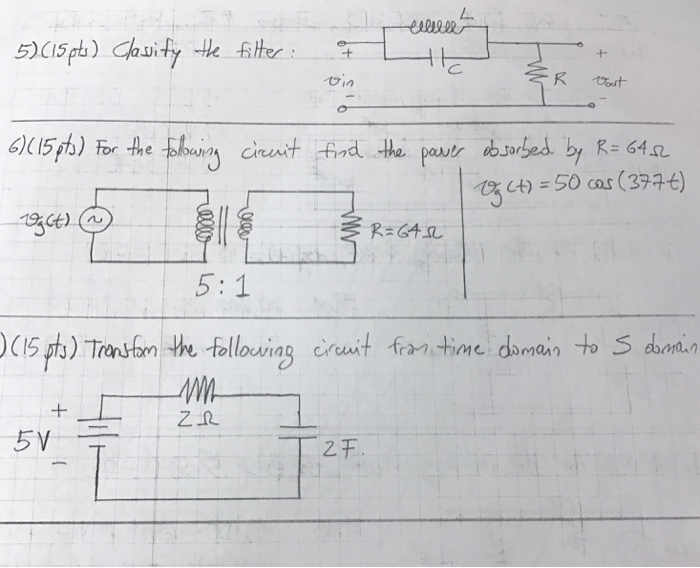 5) (15 pts) Classify the filter :
L
C
+
vin
-
R
+
vout
-
6) (15 pts) For the following circuit find the power absorbed by R = 64 Ω
vg(t) = 50 cos(377t)
vg(t)
~
R = 64 Ω
5 : 1
) (15 pts) Transfom the following circuit from time domain to S domain
+
5V
-
2 Ω
2 F.